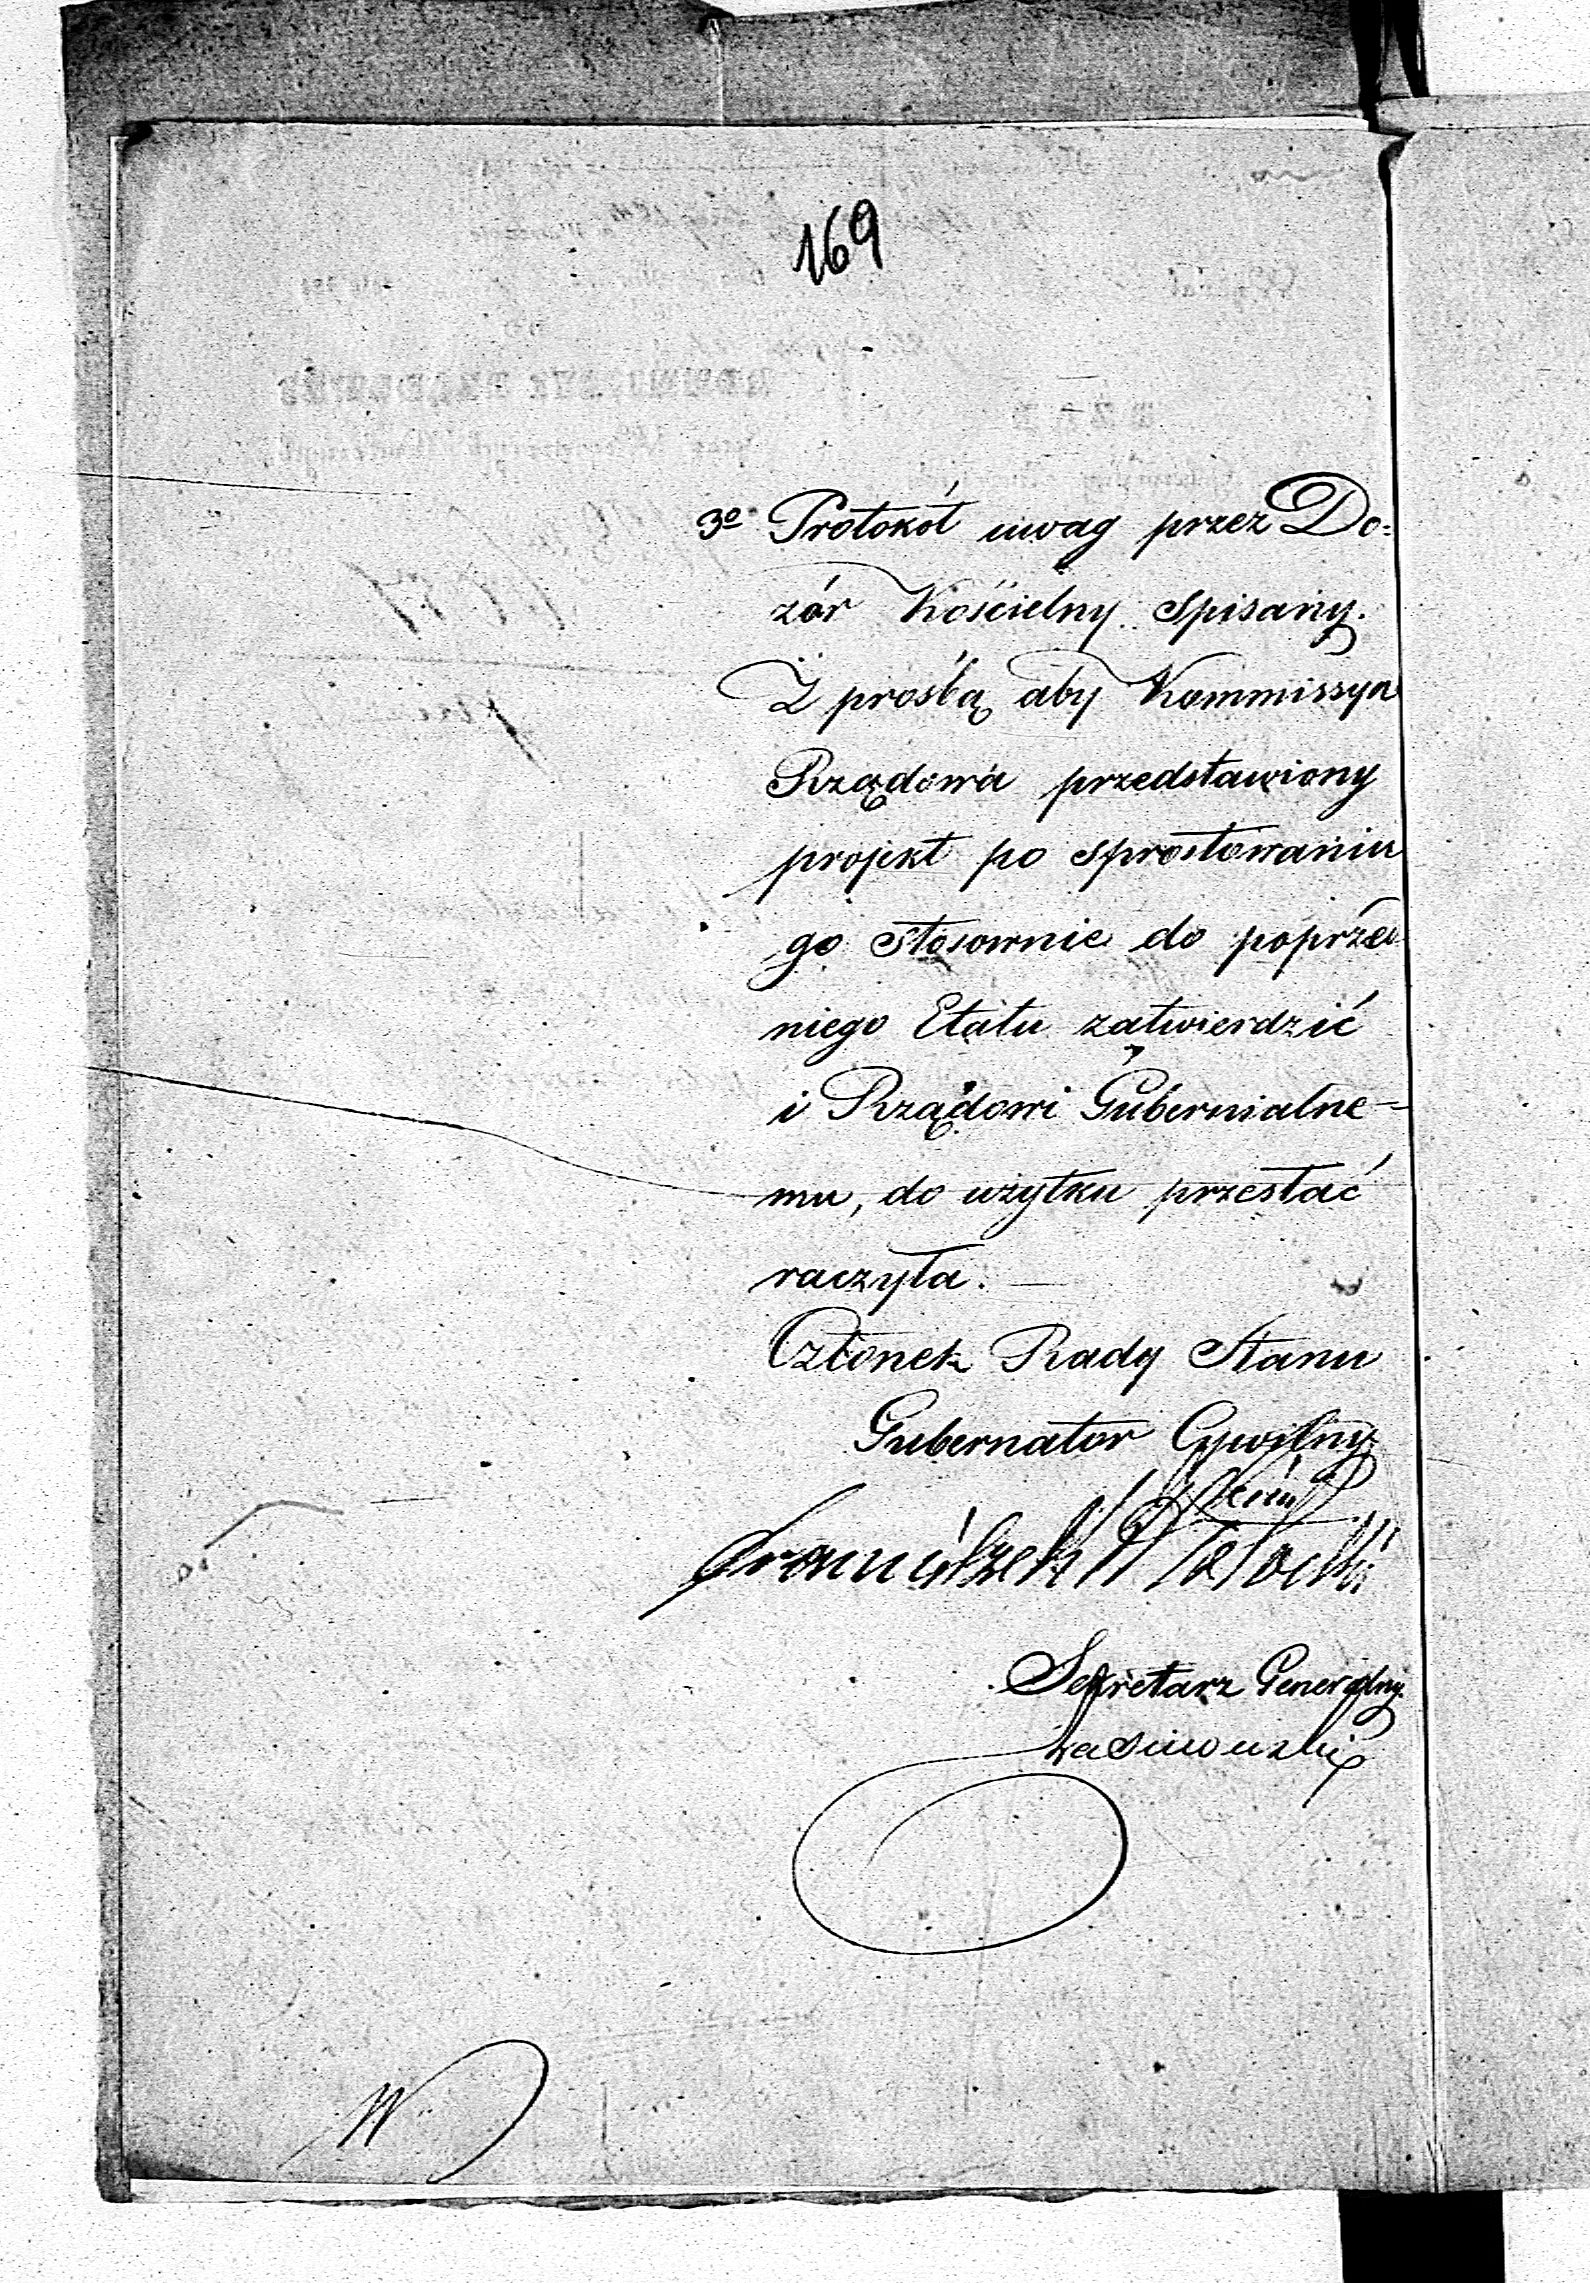 169
3o Protokół uwag przez Do=
zór Kościelny spisany.
Z prośbą aby Kommissya
Rządowa przedstawiony
projekt po sprostowaniu
go stosownie do poprzed
niego Etatu zatwierdzić
i Rządowi Gubernialne-
mu, do użytku przesłać
raczyła. —
Członek Rady Stanu
Gubernator Cywilny
Franciszek Potocki
Sekretarz Generalny
W